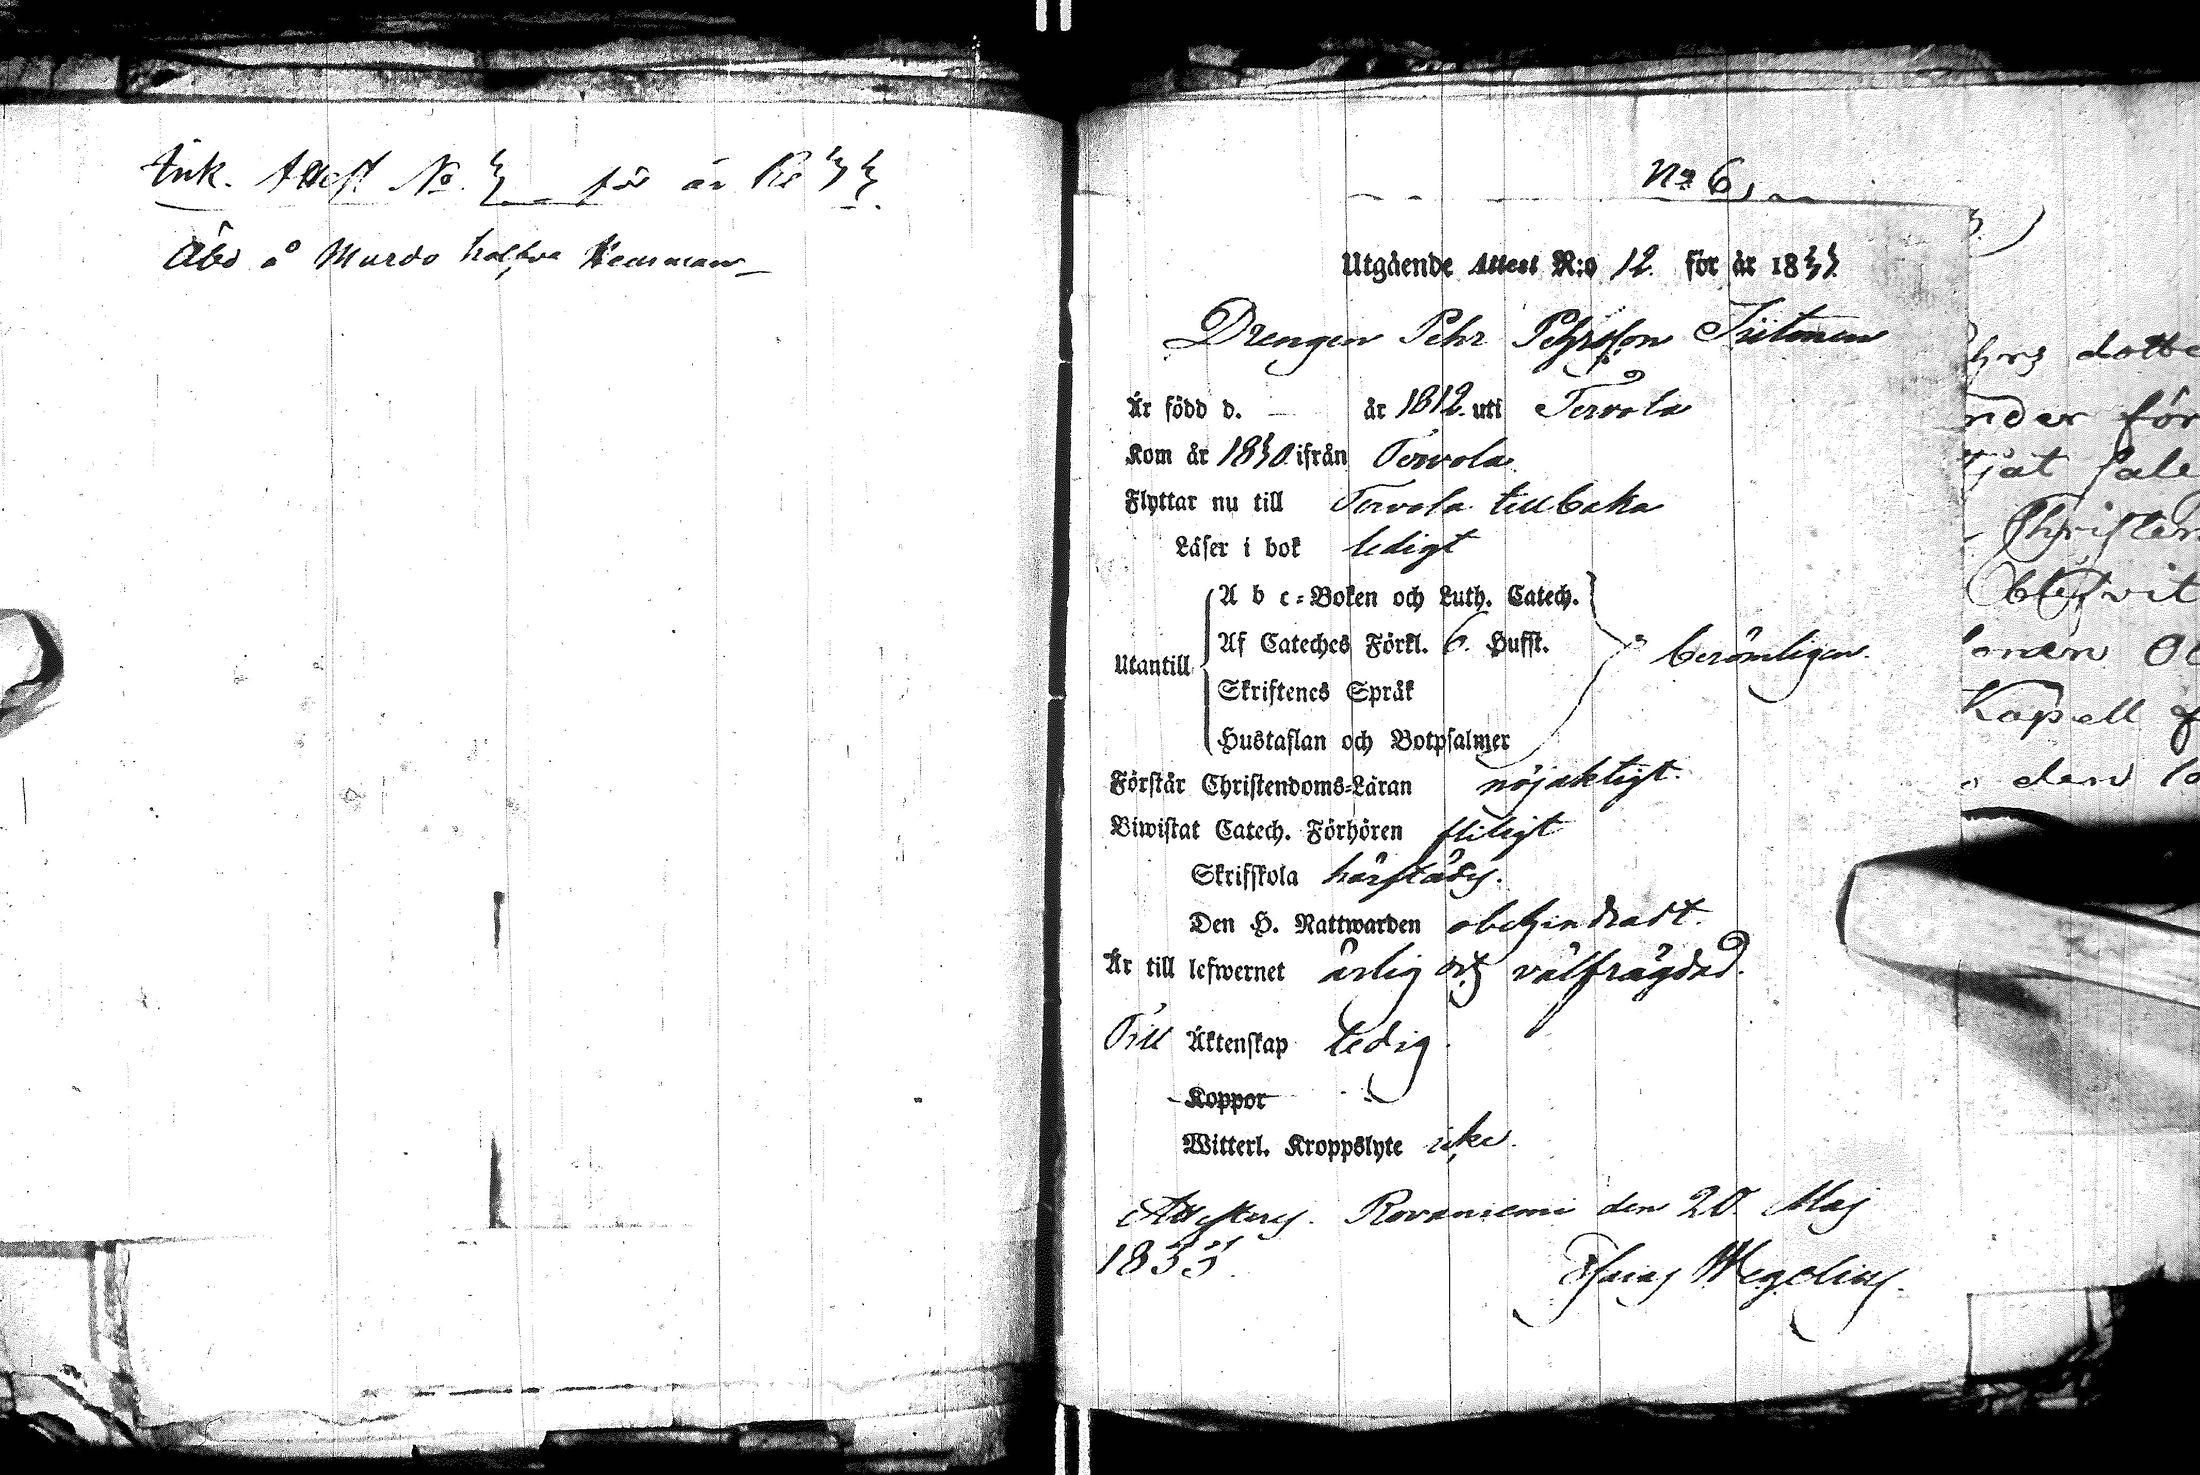 Ink. Attest No. 5 för år 1833.
Åbo å Murdo halfva Hemman
No 6.
Utgående Attest N:o 12. för år 1833
Drengen Pehr Pehrsson Tiitonen
Är född d. — år 1812. uti Tervola
Kom år 1830 ifrån Tervola
Flyttar nu till Tervola tillbaka
Läser i bok ledigt
Utantill
A b c-Boken och Luth. Catech.
Af Cateches Förkl. 6. Hufst.
Skriftenes Språk
Hustaflan och Botpsalmer
berömligen.
Förstår Christendoms-Läran nöjaktigt.
Biwistat Catech. Förhören flitigt
Skrifskola härstädes.
Den H. Nattwarden obehindradt.
Är till lefwernet ärlig och välfrägdad.
Till Äktenskap ledig.
Koppor
Witterl. Kroppslyte icke.
Attesteras. Rovaniemi den 20 Maj
1833.
Esaias Wegelius.
hrs dotte
nder för
Christen
Kapell f
den